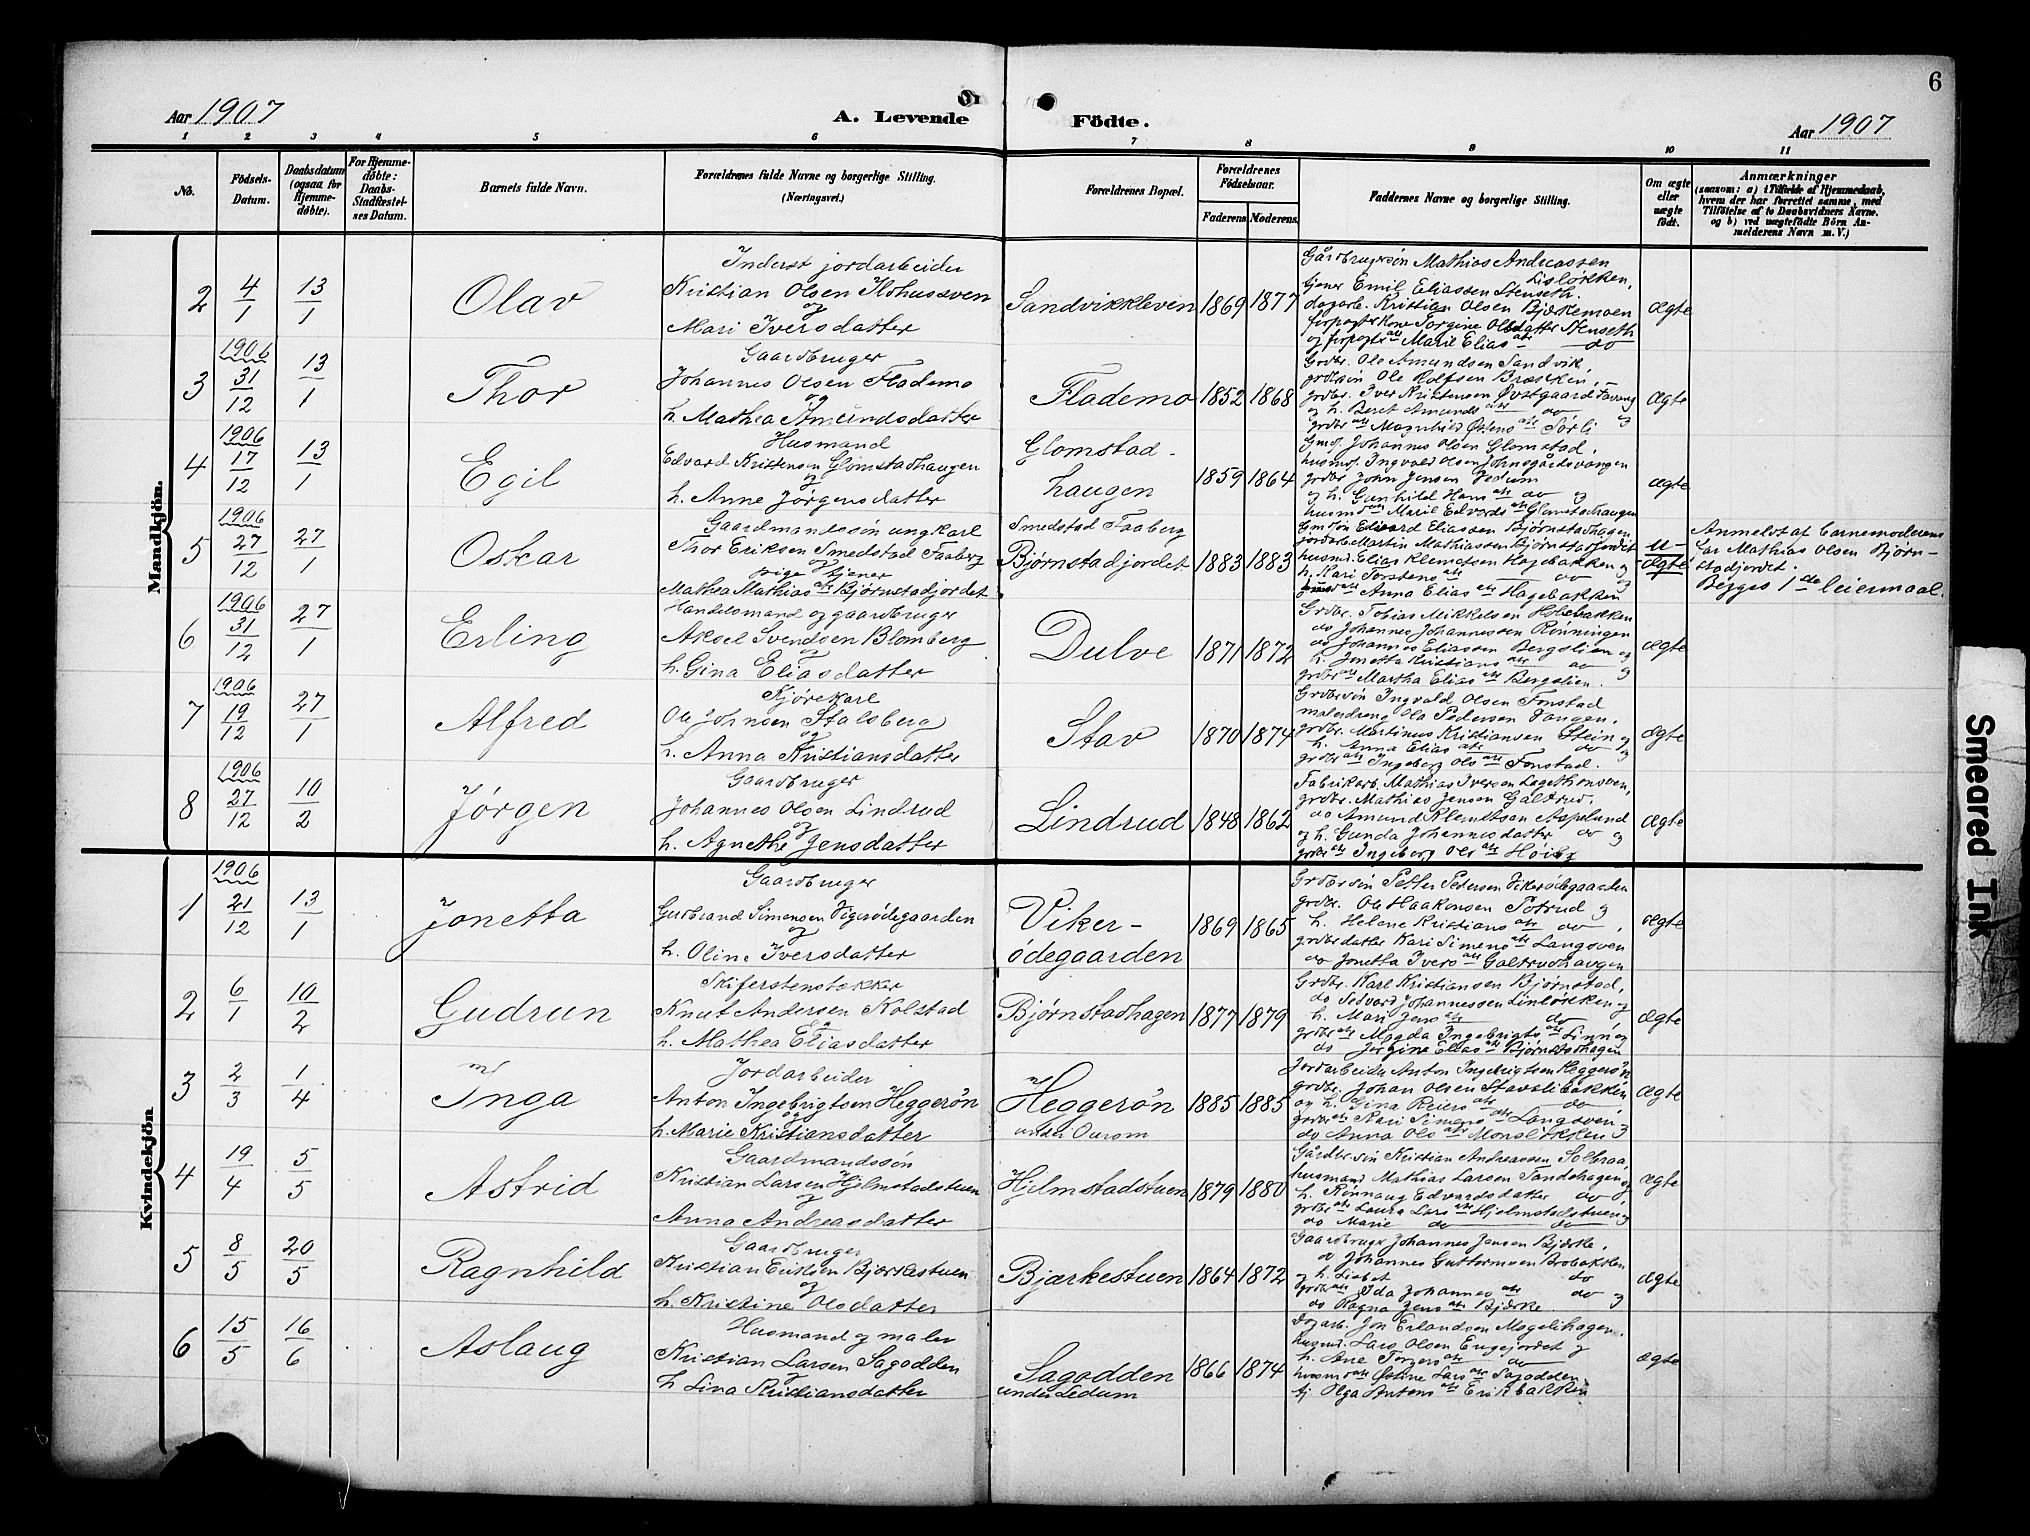 6
Aar 1907
A. Levende
Födte.
Aar 1907
1 2 3 4 5 6 7 8 9 10 11
No.
Födsels-
Datum.
Daabsdatum
(ogsaa for
Hjemme-
döbte).
For Hjemme-
döbte:
Daabs-
Stadfæstel-
ses Datum.
Barnets fulde Navn.
Forældrenes fulde Navne og borgerlige Stilling.
(Næringsvei.)
Forældrenes Bopæl.
Forældrenes
Födselsaar.
Faderens.
Moderens.
Faddernes Navne og borgerlige Stilling.
Om ægte
eller
uægte
födt.
Anmærkninger
(saasom: a) i Tilfælde af Hjemmedaab,
hvem der har forrettet samme, med
Tilföielse af to Daabsvidners Navne.
og b) ved uægtefödte Börn An-
melderens Navn m. V.)
Mandkjön.
2
4/1
13/1
Olav
Inderst jordarbeider
Kristian Olsen
og
Mari Iversdatter
Sandvikkleven
1869
1877
Gårdbrugersøn Mathias Andreassen
Lisløkken,
tjener Emil Eliassen Stenseth.
dagarb. Kristian Olsen Bjerkemoen
forpagterkone Torgine Olsdatter Stenseth
og Marie Elias dtr do
Ægte
3
1906
31/12
13/1
Thor
Gaardbruger
Johannes Olsen Flademo
og
h. Mathea Amundsdatter
Flademo
1852
1868
Grdbr. Ole Amundsen Sandvik,
grdbr. Iver Kristensen
og h. Beret Amunds dtr do
grdbr dtr Magnhild Østens dtr Sørli
Ægte
4
1906
17/12
13/1
Egil
Husmand
Edvard Kristensen Glomstadhaugen
og
h. Anne Jørgensdatter
Glomstad-
haugen
1859
1864
Johannes Olsen Glomstad,
Ingvald Olsen
grdbr John Jensen
og h. Gunhild Hans dtr do og
Marie Edvards dtr Glomstadhaugen
ægte
5
1906
27/12
27/1
Oskar
Gaardmandssøn ungkarl
Thor Eriksen Smedstad Faaberg
og
pige tjener
Mathea Mathias dtr Bjørnstadjordet
Smedstad Faaberg
Bjørnstadjordet
1883
1883
Edvard Eliassen Bjørnstadhagen,
jordarb. Martin Mathiassen Bjørnstadjordet
husmd. Elias Klemetsen Hagebakken og
h. Kari Torstens dtr do
Anna Elias dtr Hagebakken
u-
ægte
Anmeldt af barnemoderens
far Mathias Olsen Bjørn-
stadjordet.
Begges 1ste leiermaal.
6
1906
31/12
27/1
Erling
Handelsmand og gaardbruger
Aksel Svendsen Blomberg
og
h. Gina Eliasdatter
Dulve
1871
1872
Grdbr. Tobias Mikkelsen Holebakken
do Johannes Johannessen Rønningen
do Johannes Eliassen Bergslien og
h. Jonetta Kristians dtr do og
grdbr dtr Martha Elias dtr Bergslien.
ægte
7
1906
19/12
27/1
Alfred
Kjørekarl
Ole Johnsen Stalsberg
og
h. Anna Kristiansdatter
Stav
1870
1874
Grdbr søn Ingvald Olsen Fonstad
malerdreng Ole Pedersen Vangen,
grdbr. Martinus Kristiansen Stein og
h. Anna Elias dtr do og
grdbr dtr Ingeborg Ols dtr Fonstad.
ægte
8
1906
27/12
10/2
Jørgen
Gaardbruger
Johannes Olsen Lindrud
og
h. Agnethe Jensdatter
Lindrud
1848
1862
Fabrikarb. Mathias Iversen
grdbr. Mathias Jensen Galtrud.
do Amund Klemetsen
og h. Gunda Johannesdatter do og
grdbr dtr Ingeborg Ols dtr
ægte
Kvindekjön
1
1906
21/12
13/1
Jonetta
Gaardbruger
Gudbrand Simensen Vigerødegaarden
og
h. Oline Iversdatter
Viker-
ødegaarden
1869
1865
Grdbrsøn Petter Pedersen Vikerødegaarden
grdbr. Ole Haakonsen Potrud og
h. Helene Kristians dtr do,
grdbrdatter Kari Simens dtr Langsveen
do Jonetta Ivers dtr Galtrudhaugen
ægte
2
6/1
10/2
Gudrun
Skiferstenstækker
Knut Andersen Kolstad
og
h. Mathea Eliasdatter
Bjørnstadhagen
1877
1879
Grdbr. Karl Kristiansen Bjørnstad,
do Sedvard Johannessen Linløkken og
h. Mari Jens dtr do
grdbr dtr Magda Ingebrigts dtr Linn og
do Jørgine Elias dtr Bjørnstadhagen
Ægte
3
2/3
1/4
Inga
Jordarbeider
Anton Ingebrigtsen Heggerøn
og
h. Marie Kristiansdatter
Heggerøn
under Ourom
1885
1885
Jordarbeider Anton Ingebrigtsen Heggerøn
grdbr. Johan Olsen Stavslibakken
og h. Gina Reiers dtr do
grdbr dtr Kari Simens dtr Langsven og
do Anna Ols dtr Monsløkken
Ægte
4
19/4
5/5
Astrid
Gaardmandssøn
Kristian Larsen Hjelmstadstuen
og
Anna Andreasdatter
Hjelmstadstuen
1879
1880
Gårdbr søn Kristian Andreassen Solbraa,
husmand Mathias Larsen Sandehagen og
h. Rønnaug Edvardsdatter do
grdbr dtr Laura Lars dtr Hjelmstadstuen og
do Marie do do
Ægte
5
8/5
20/5
Ragnhild
Gaardbruger
Kristian Eriksen Bjærkestuen
og
h. Kristine Olsdatter
Bjærkestuen
1864
1872
Gaardbruger Johannes Jensen Bjerke,
do Johannes Guttormsen Brobakken
og h. Lisbet do
grdbr dtr Ida Johannes dtr do og
do Ragna Jens dtr Bjerke
ægte
6
15/5
16/6
Aslaug
Husmand og maler
Kristian Larsen Sagodden
og
h. Lina Kristiansdatter
Sagodden
under Ledum
1866
1874
Dagarb. Jon Erlandsen Magelihagen,
husmd. Lars Olsen Engejordet og
h. Ane Torgers dtr do
husm dtr Østine Lars dtr Sagodden
tj. Olga Antons dtr Erikbakken
ægte
Smeared Ink